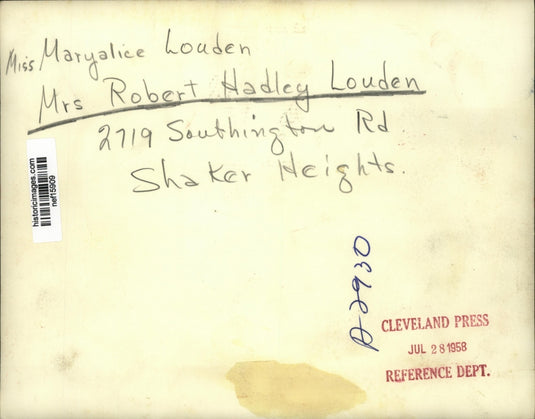 Miss Maryalice Louden
Mrs Robert Hadley Louden
2719 Southington Rd
Shaker Heights.
historicimages.com
nef15909
A-2930
CLEVELAND PRESS
JUL 28 1958
REFERENCE DEPT.